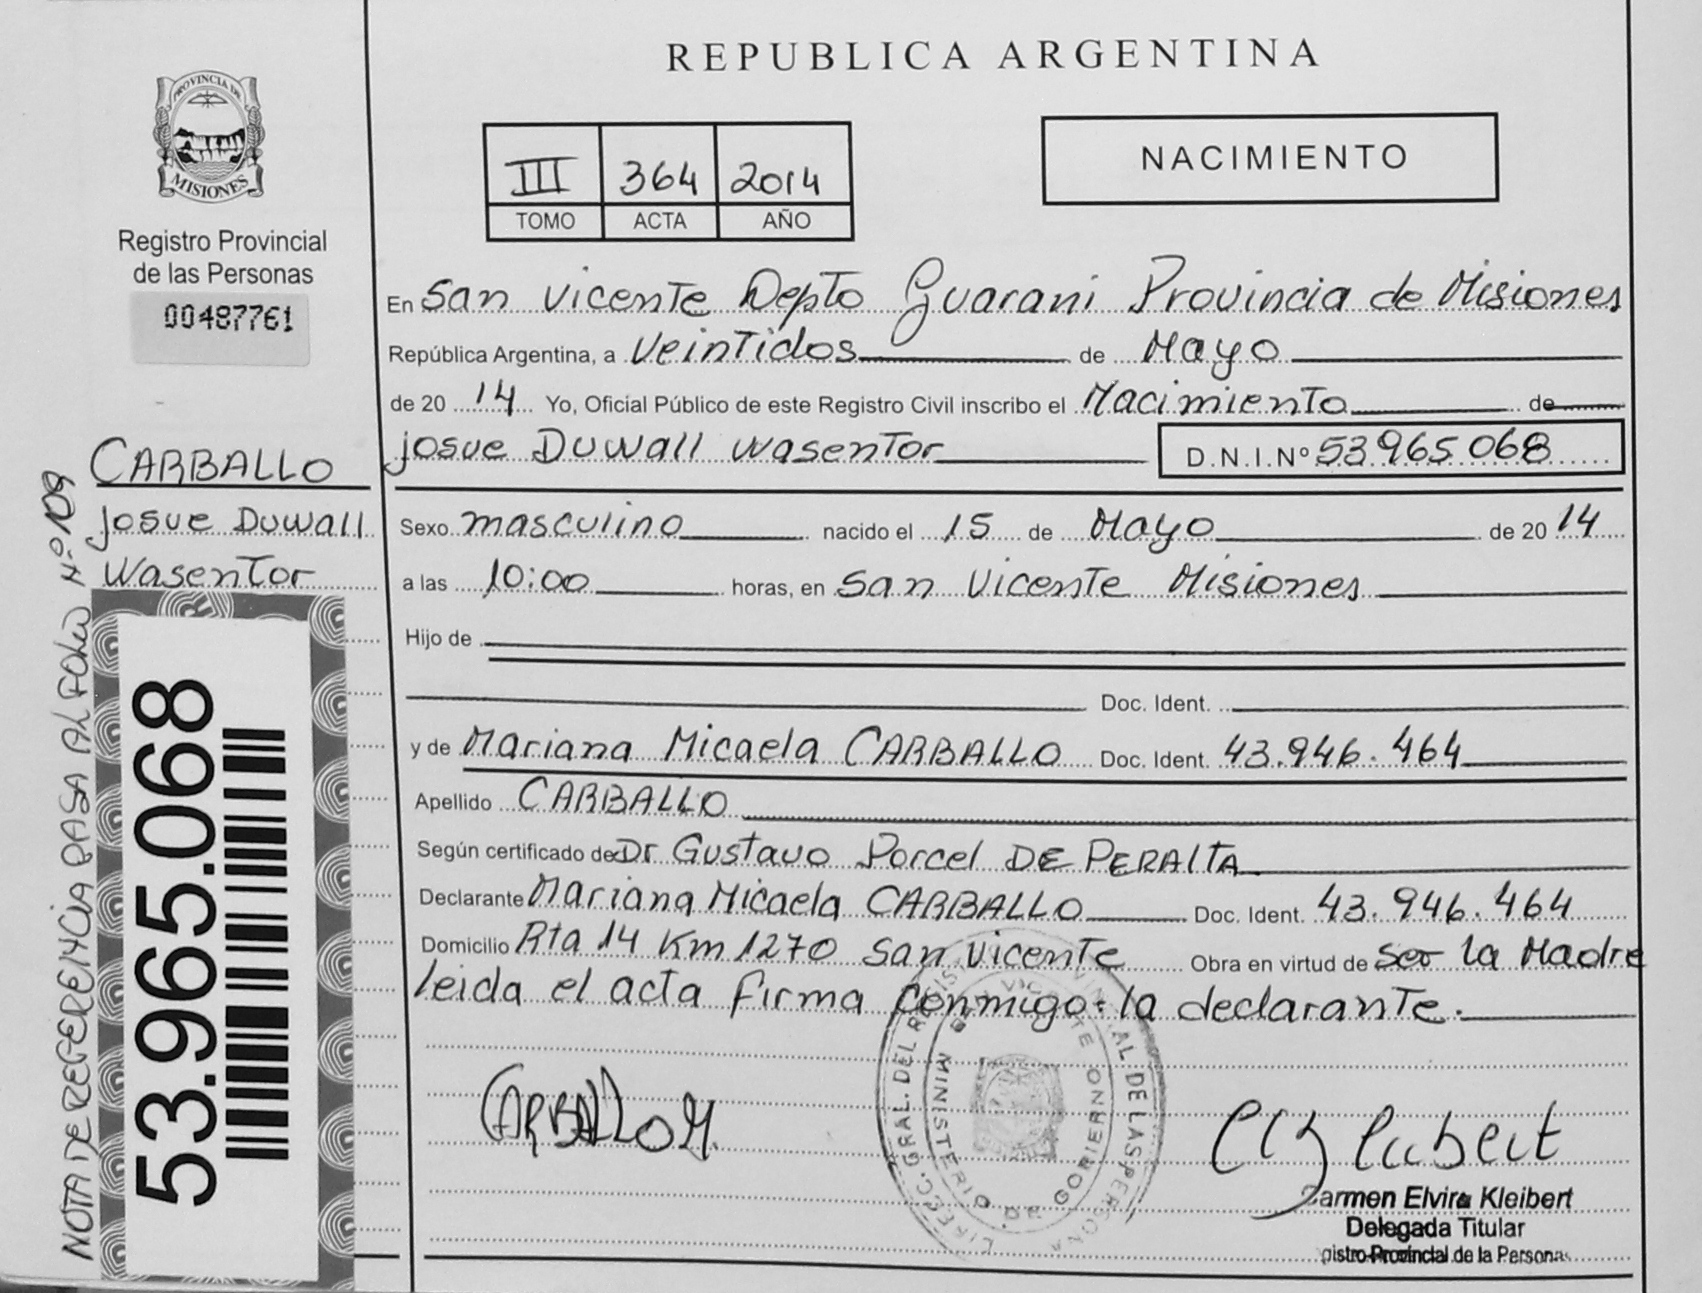 REPUBLICA ARGENTINA
PROVINCIA DE
MISIONES
Registro Provincial
de las Personas
00487761
III 364 2014
TOMO ACTA AÑO
NACIMIENTO
En San Vicente Depto Guarani Provincia de Misiones
República Argentina, a Veintidos de Mayo
de 20 14 Yo, Oficial Público de este Registro Civil inscribo el Nacimiento de
Josue Duwall Wasentor D.N.I.Nº 53965068
Sexo masculino nacido el 15 de Mayo de 20 14
a las 10:00 horas, en San Vicente Misiones
Hijo de
Doc. Ident.
y de Mariana Micaela CARBALLO Doc. Ident. 43.946.464
Apellido CARBALLO
Según certificado de Dr Gustavo Porcel DE PERALTA
Declarante Mariana Micaela CARBALLO Doc. Ident. 43.946.464
Domicilio Rta 14 Km 1270 San Vicente Obra en virtud de ser la Madre
leida el acta firma conmigo: la declarante.
CARBALLO M.
MINISTERIO DE GOBIERNO
Carmen Elvira Kleibert
Delegada Titular
gistro Provincial de la Personas
CARBALLO
Josue Duwall
Wasentor
53.965.068
NOTA DE REFERENCIA PASA AL FOLIO Nº 109